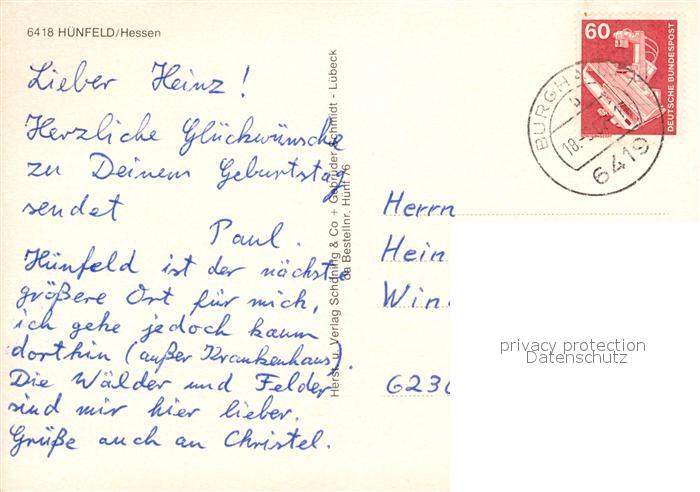 6418 HÜNFELD/Hessen
Lieber Heinz!
Herzliche Glückwünsche
zu Deinem Geburtstag
sendet
Paul.
Hünfeld ist der nächste
größere Ort für mich,
ich gehe jedoch kaum
dorthin (außer Krankenhaus).
Die Wälder und Felder
sind mir hier lieber.
Grüße auch an Christel.
Herst. u. Verlag Schöning & Co + Gebrüder Schmidt - Lübeck
Bestellnr. Hünf 76
60
DEUTSCHE BUNDESPOST
6419
Herrn
Hein
Win
privacy protection
Datenschutz
623